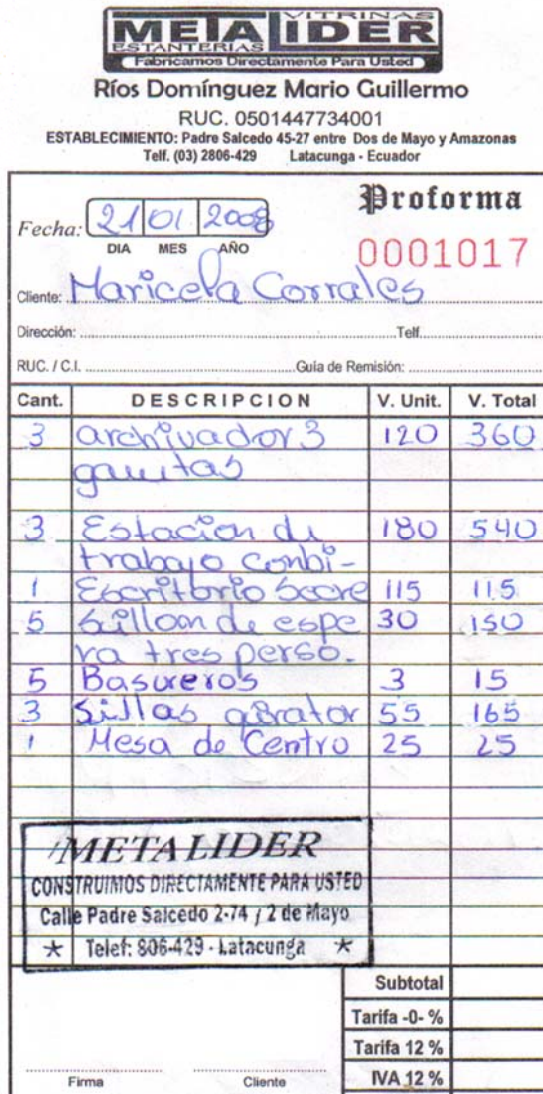 VITRINAS
METALIDER
ESTANTERIAS
Fabricamos Directamente Para Usted
Ríos Domínguez Mario Guillermo
RUC. 0501447734001
ESTABLECIMIENTO: Padre Salcedo 45-27 entre Dos de Mayo y Amazonas
Telf. (03) 2806-429 Latacunga - Ecuador
Proforma
Fecha: 21 01 2008
DIA MES AÑO
0001017
Cliente: Maricela Corrales
Dirección: Telf.
RUC. / C.I. Guía de Remisión:
Cant. DESCRIPCION V. Unit. V. Total
3 archivador 3 120 360
gavitas
3 Estacion de 180 540
trabajo conbi-
1 Escritorio Secre 115 115
5 Sillon de espe 30 150
ra tres perso.
5 Basureros 3 15
3 Sillas girator 55 165
1 Mesa de Centro 25 25
METALIDER
CONSTRUIMOS DIRECTAMENTE PARA USTED
Calle Padre Salcedo 2-74 / 2 de Mayo
* Telef: 806-429 - Latacunga *
Subtotal
Tarifa -0- %
Tarifa 12 %
IVA 12 %
Firma Cliente